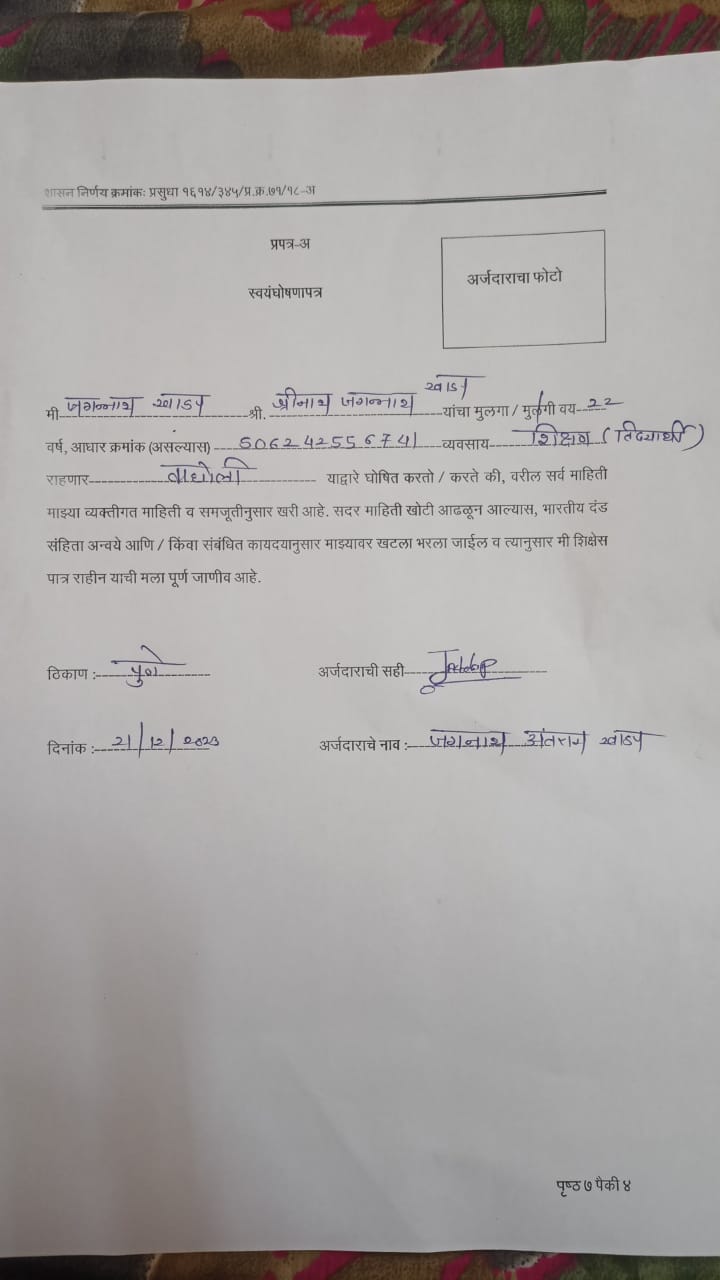 शासन निर्णय क्रमांकः प्रसुधा १६१४/३४५/प्र.क्र.७१/१८-अ
प्रपत्र-अ
अर्जदाराचा फोटो
स्वयंघोषणापत्र
मी जगन्नाथ खाडप श्री. श्रीनाथ जगन्नाथ खाडप यांचा मुलगा / मुलगी वय २२
वर्ष, आधार क्रमांक (असल्यास) 506242556741 व्यवसाय शिक्षण (विद्यार्थी)
राहणार वाघोली याद्वारे घोषित करतो / करते की, वरील सर्व माहिती
माझ्या व्यक्तीगत माहिती व समजूतीनुसार खरी आहे. सदर माहिती खोटी आढळून आल्यास, भारतीय दंड
संहिता अन्वये आणि / किंवा संबंधित कायदयानुसार माझ्यावर खटला भरला जाईल व त्यानुसार मी शिक्षेस
पात्र राहीन याची मला पूर्ण जाणीव आहे.
ठिकाण :- पुणे अर्जदाराची सही
दिनांक :- 21/12/2023 अर्जदाराचे नाव :- जगन्नाथ खाडप
पृष्ठ ७ पैकी ४